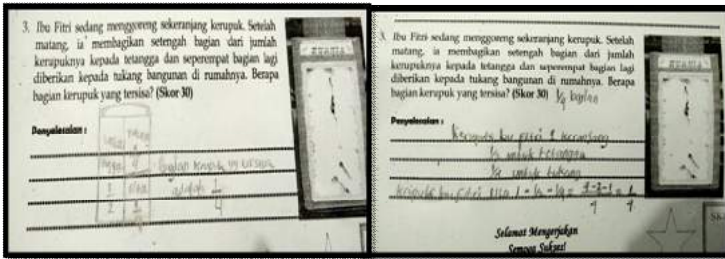 3. Ibu Fitri sedang menggoreng sekeranjang kerupuk. Setelah
matang, ia membagikan setengah bagian dari jumlah
kerupuknya kepada tetangga dan seperempat bagian lagi
diberikan kepada tukang bangunan di rumahnya. Berapa
bagian kerupuk yang tersisa? (Skor 30)
Penyelesaian :
bagian kerupuk yg tersisa
adalah 1/4
1/2
sisa
3. Ibu Fitri sedang menggoreng sekeranjang kerupuk. Setelah
matang, ia membagikan setengah bagian dari jumlah
kerupuknya kepada tetangga dan seperempat bagian lagi
diberikan kepada tukang bangunan di rumahnya. Berapa
bagian kerupuk yang tersisa? (Skor 30) 1/4 bagian
Penyelesaian :
kerupuk bu fitri 1 keranjang
1/2 untuk tetangga
1/4 untuk tukang
kerupuk bu fitri sisa 1 - 1/2 - 1/4 = 4-2-1/4 = 1/4
Selamat Mengerjakan
Semoga Sukses!